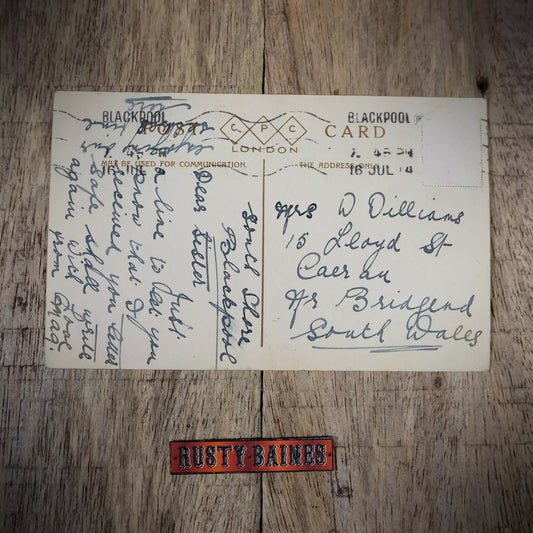 BLACKPOOL
16 JUL
POST
C P C
CARD
LONDON
MAY BE USED FOR COMMUNICATION.
THE ADDRESS ONLY
BLACKPOOL
7. 45 PM
16 JUL 14
South Shore
Blackpool
Dear Sister
Just
a line to let you
know that I
received you
safe shall write
again with love
from Mag
Mrs D Williams
15 Lloyd St
Caerau
Nr Bridgend
South Wales
RUSTY BAINES